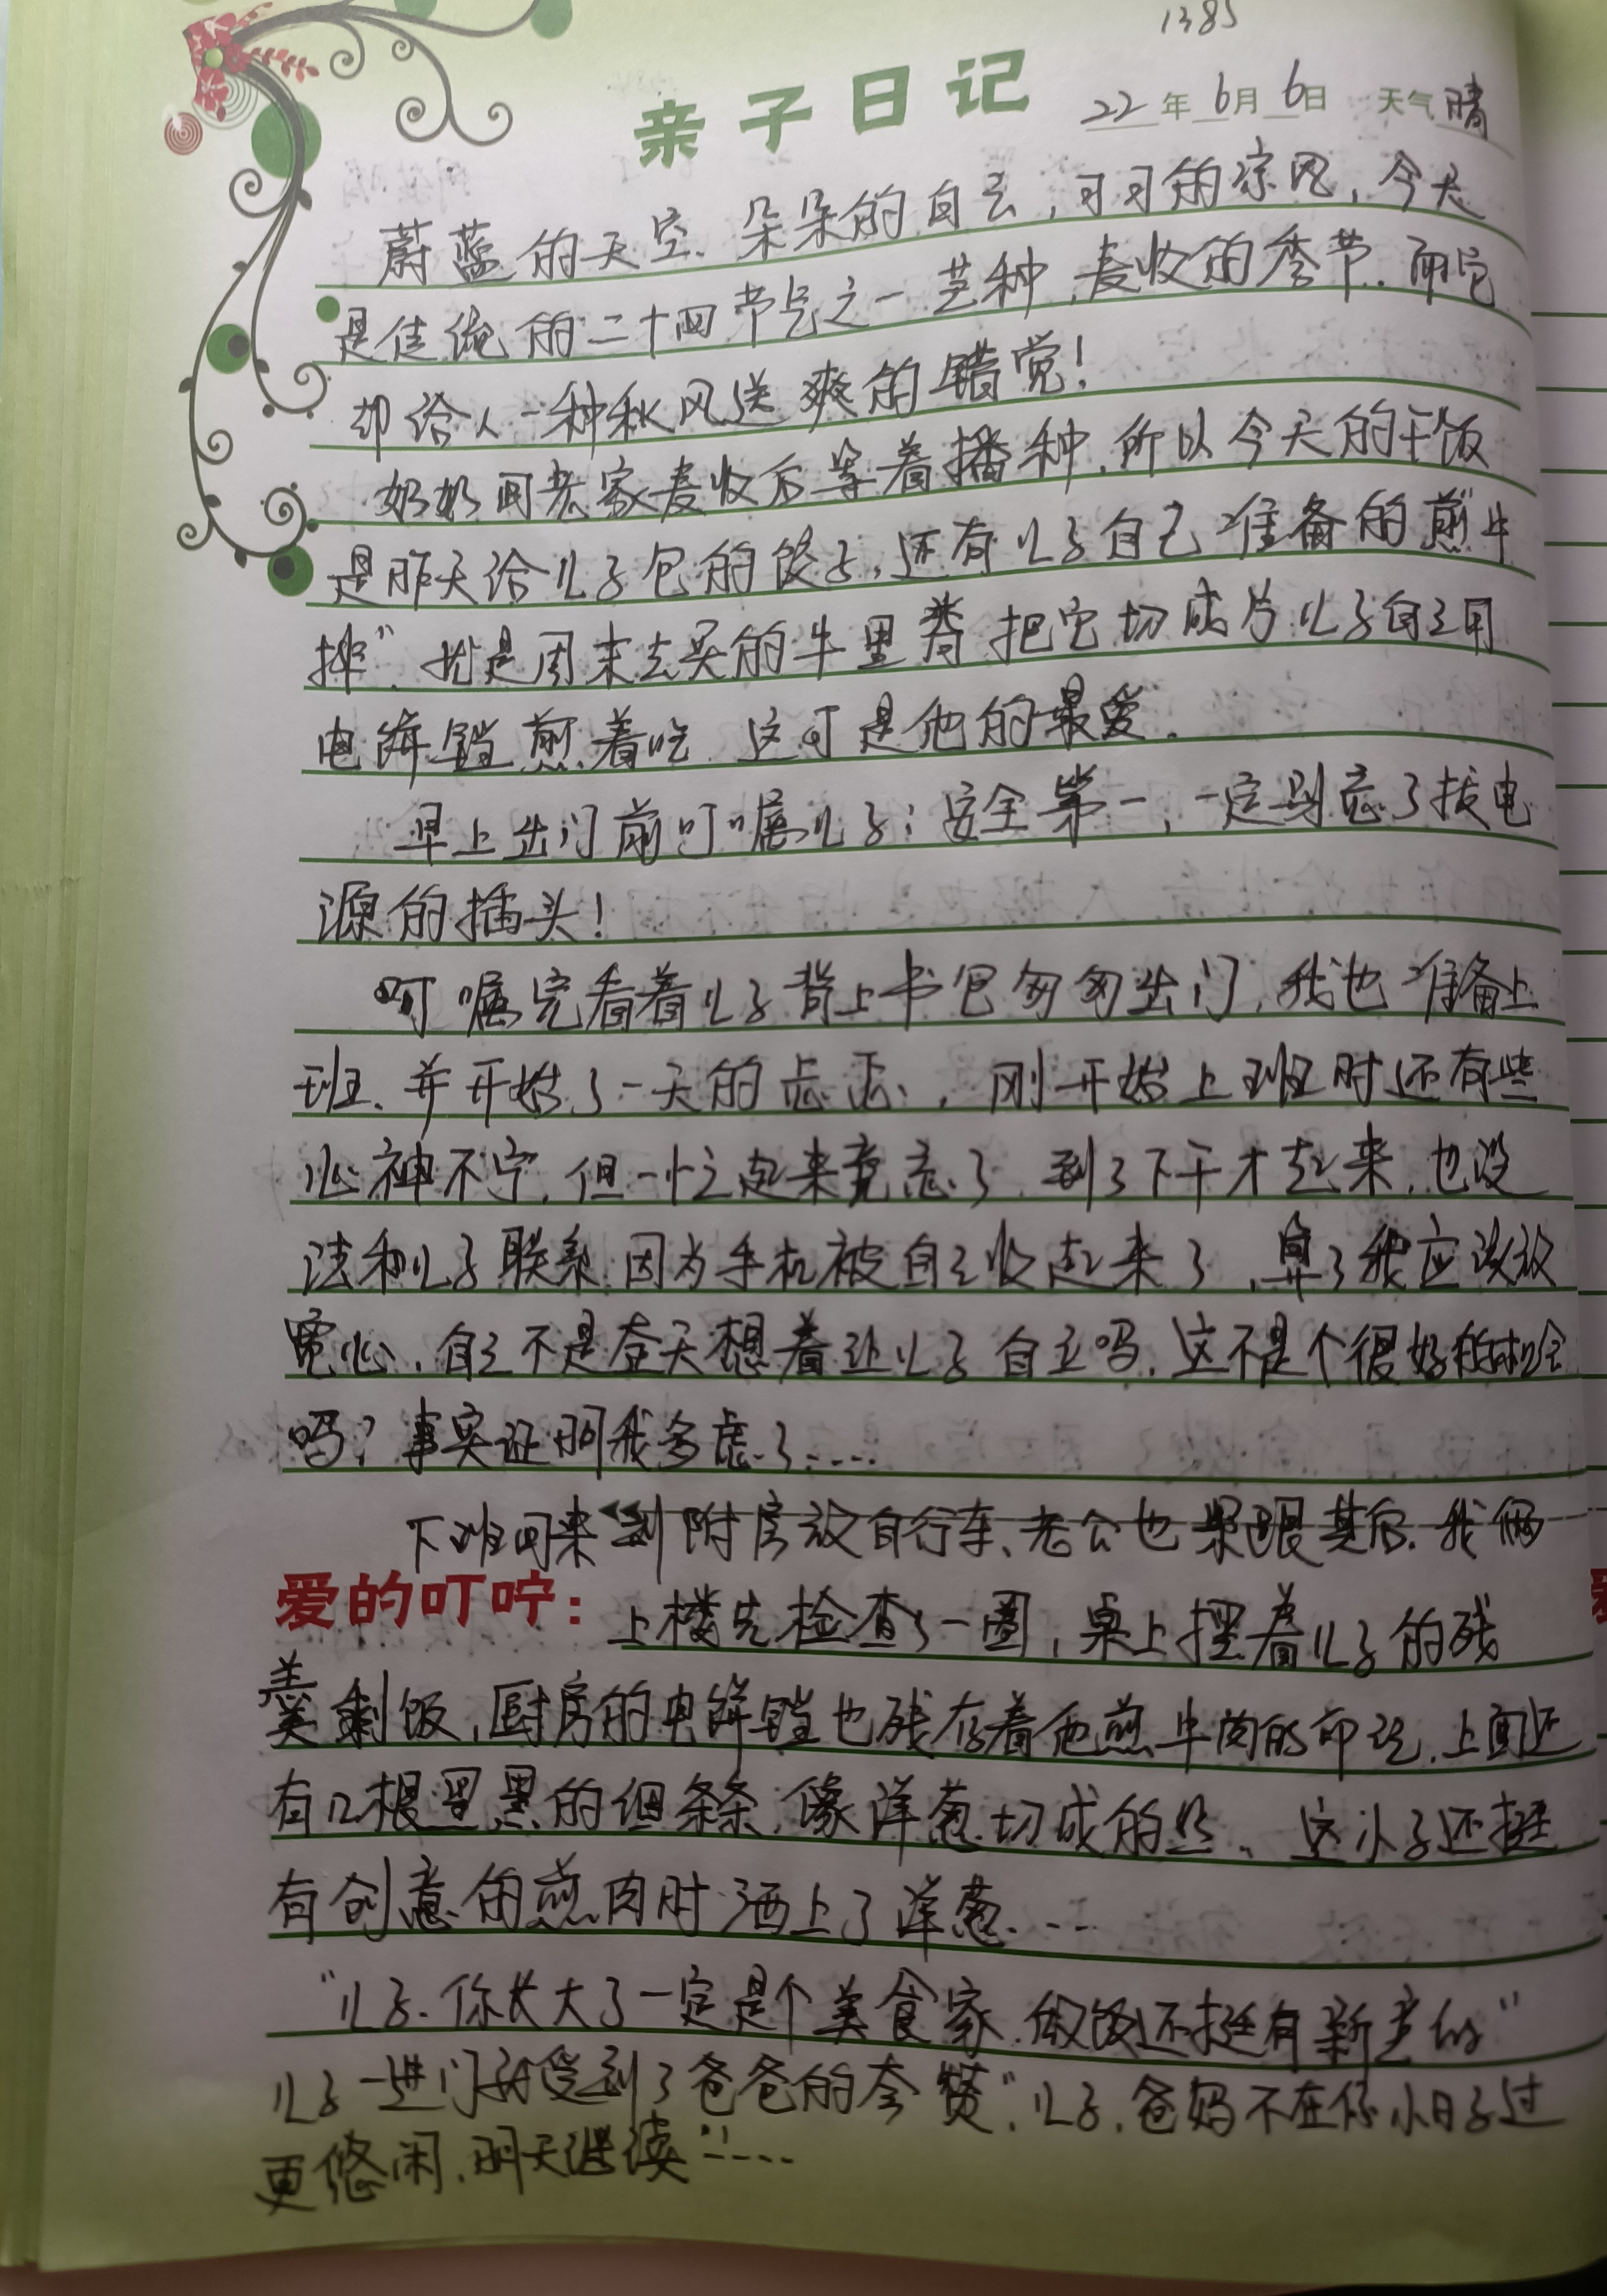 1385
亲子日记 22年6月6日 天气晴
蔚蓝的天空、朵朵的白云，习习的凉风，今天
是传统的二十四节气之一芒种，麦收的季节，而它
却给人一种秋风送爽的错觉！
奶奶回老家麦收后等着播种，所以今天的午饭
是昨天给儿子包的饺子，还有儿子自己准备的“煎牛
排”，就是周末去买的牛里脊把它切成片儿子自己用
电饼铛煎着吃，这可是他的最爱。
早上出门前叮嘱儿子：安全第一，一定别忘了拔电
源的插头！
叮嘱完看着儿子背上书包匆匆出门，我也准备上
班、并开始了一天的忐忑，刚开始上班时还有些
心神不宁，但一忙起来竟忘了，到了下午才想起来，也没
法和儿子联系，因为手机被自己收起来了，算了我应该放
宽心，自己不是每天想着让儿子自立吗，这不是个很好的机会
吗？事实证明我多虑了……
下班回来到附房放自行车、老公也紧跟其后，我俩
爱的叮咛：上楼先检查了一圈，桌上摆着儿子的残
羹剩饭，厨房的电饼铛也残存着他煎牛肉的印记，上面还
有几根黑黑的细条条，像洋葱切成的丝、这小子还挺
有创意的煎肉时洒上了洋葱……
“儿子，你长大了一定是个美食家，做饭还挺有新意的”
儿子一进门就受到了爸爸的夸赞“儿子，爸妈不在你小日子过
更悠闲，明天继续”……